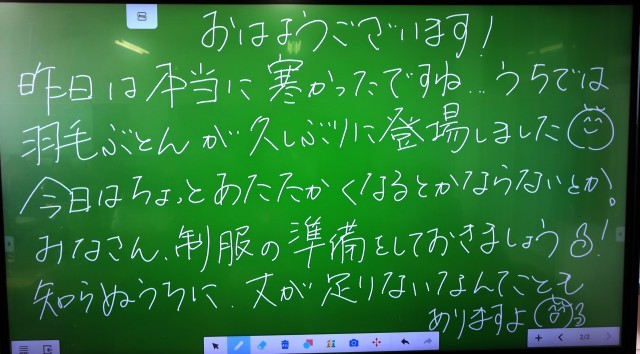 おはようございます!
昨日は本当に寒かったですね…うちでは
羽毛ぶとんが久しぶりに登場しました
今日はちょっとあたたかくなるとかならないとか。
みなさん、制服の準備をしておきましょう!
知らぬうちに、丈が足りないなんてことも
ありますよ
2/2